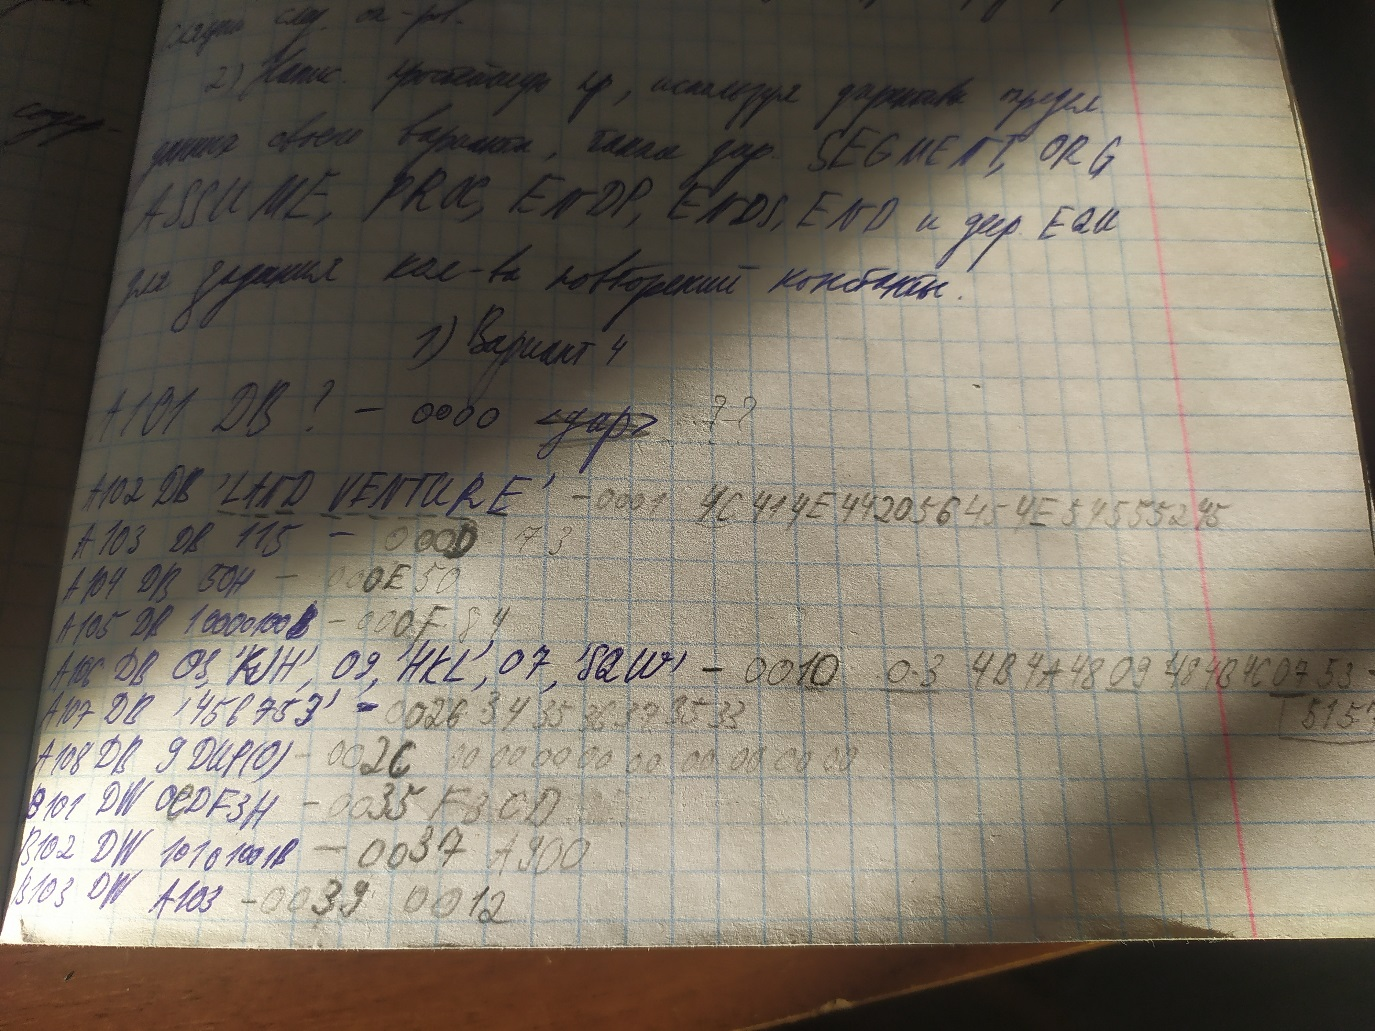 след. оп-ров.
2) Напис. простейшую пр, используя директивы предел
данных своего варианта, также дир. SEGMENT, ORG
ASSUME, PROC, ENDP, ENDS, END и дир EQU
для задания кол-ва повторений константы.
1) Вариант 4
A101 DB ? - 0000 ??
A102 DB 'LAND VENTURE' - 0001 4C414E442056454E54555245
A103 DB 115 - 000D 73
A104 DB 50H - 000E 50
A105 DB 10000100B - 000F 84
A106 DB 03, 'KJH', 09, 'HKL', 07, 'SQW' - 0010 03 4B4A48 09 484B4C 07 53
5157
A107 DB '456753' - 0026 343536373533
A108 DB 9 DUP(0) - 002C 00 00 00 00 00 00 00 00 00
B101 DW 0CDF3H - 0035 F3CD
B102 DW 10101001B - 0037 A900
B103 DW A103 - 0039 0012